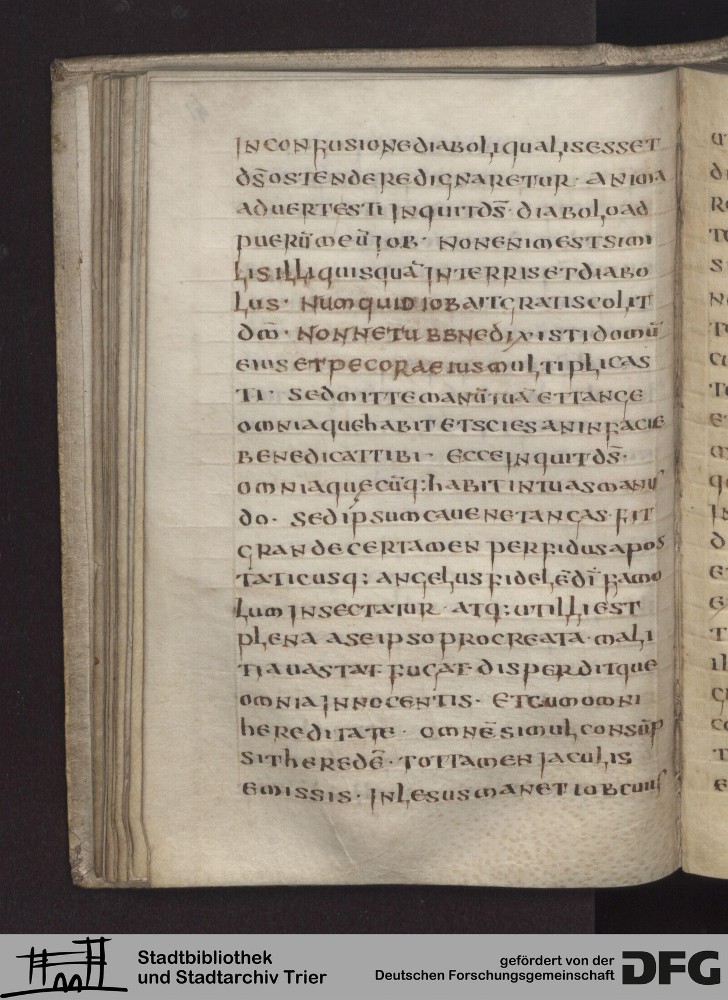 INCONFUSIONEDIABOLIQUALISESSET
DS̄OSTENDEREDIGNARETUR· ANIMA
ADUERTESTI INQUITDS̄· DIABOLOAD
PUERŪMEŪIOB· NONENIMESTSIMI
LISILLIQUISQUĀINTERRISETDIABO
LUS· NUMQUIDIOBAITGRATISCOLIT
DM̄· NONNETUBBNEDIXISTIDOMŪ
EIUSETPECORAEIUSMULTIPLICAS
TI· SEDMITTEMANŪTUĀETTANGE
OMNIAQUEHABITETSCIESANINFACIE
BENEDICATTIBI· ECCEINQUITDS̄·
OMNIAQUECŪQ;HABITINTUASMANUS
DO· SEDIPSUMCAUENETANGAS·FIT
GRANDECERTAMEN PERFIDUSAPOS
TATICUSQ; ANGELUSFIDELĒDĪFAMO
LUMINSECTATUR· ATQ;UTILLIEST
PLENA ASEIPSOPROCREATA·MALI
TIAUASTAT·FUGAT·DISPERDITQUE
OMNIAINNOCENTIS· ETCUMOMNI
HEREDITATE· OMNĒSIMULCONSŪP
SITHEREDĒ· TOTTAMENIACULIS
EMISSIS· INLESUSMANETIOBCUIUS
Stadtbibliothek
und Stadtarchiv Trier
gefördert von der
Deutschen Forschungsgemeinschaft
DFG